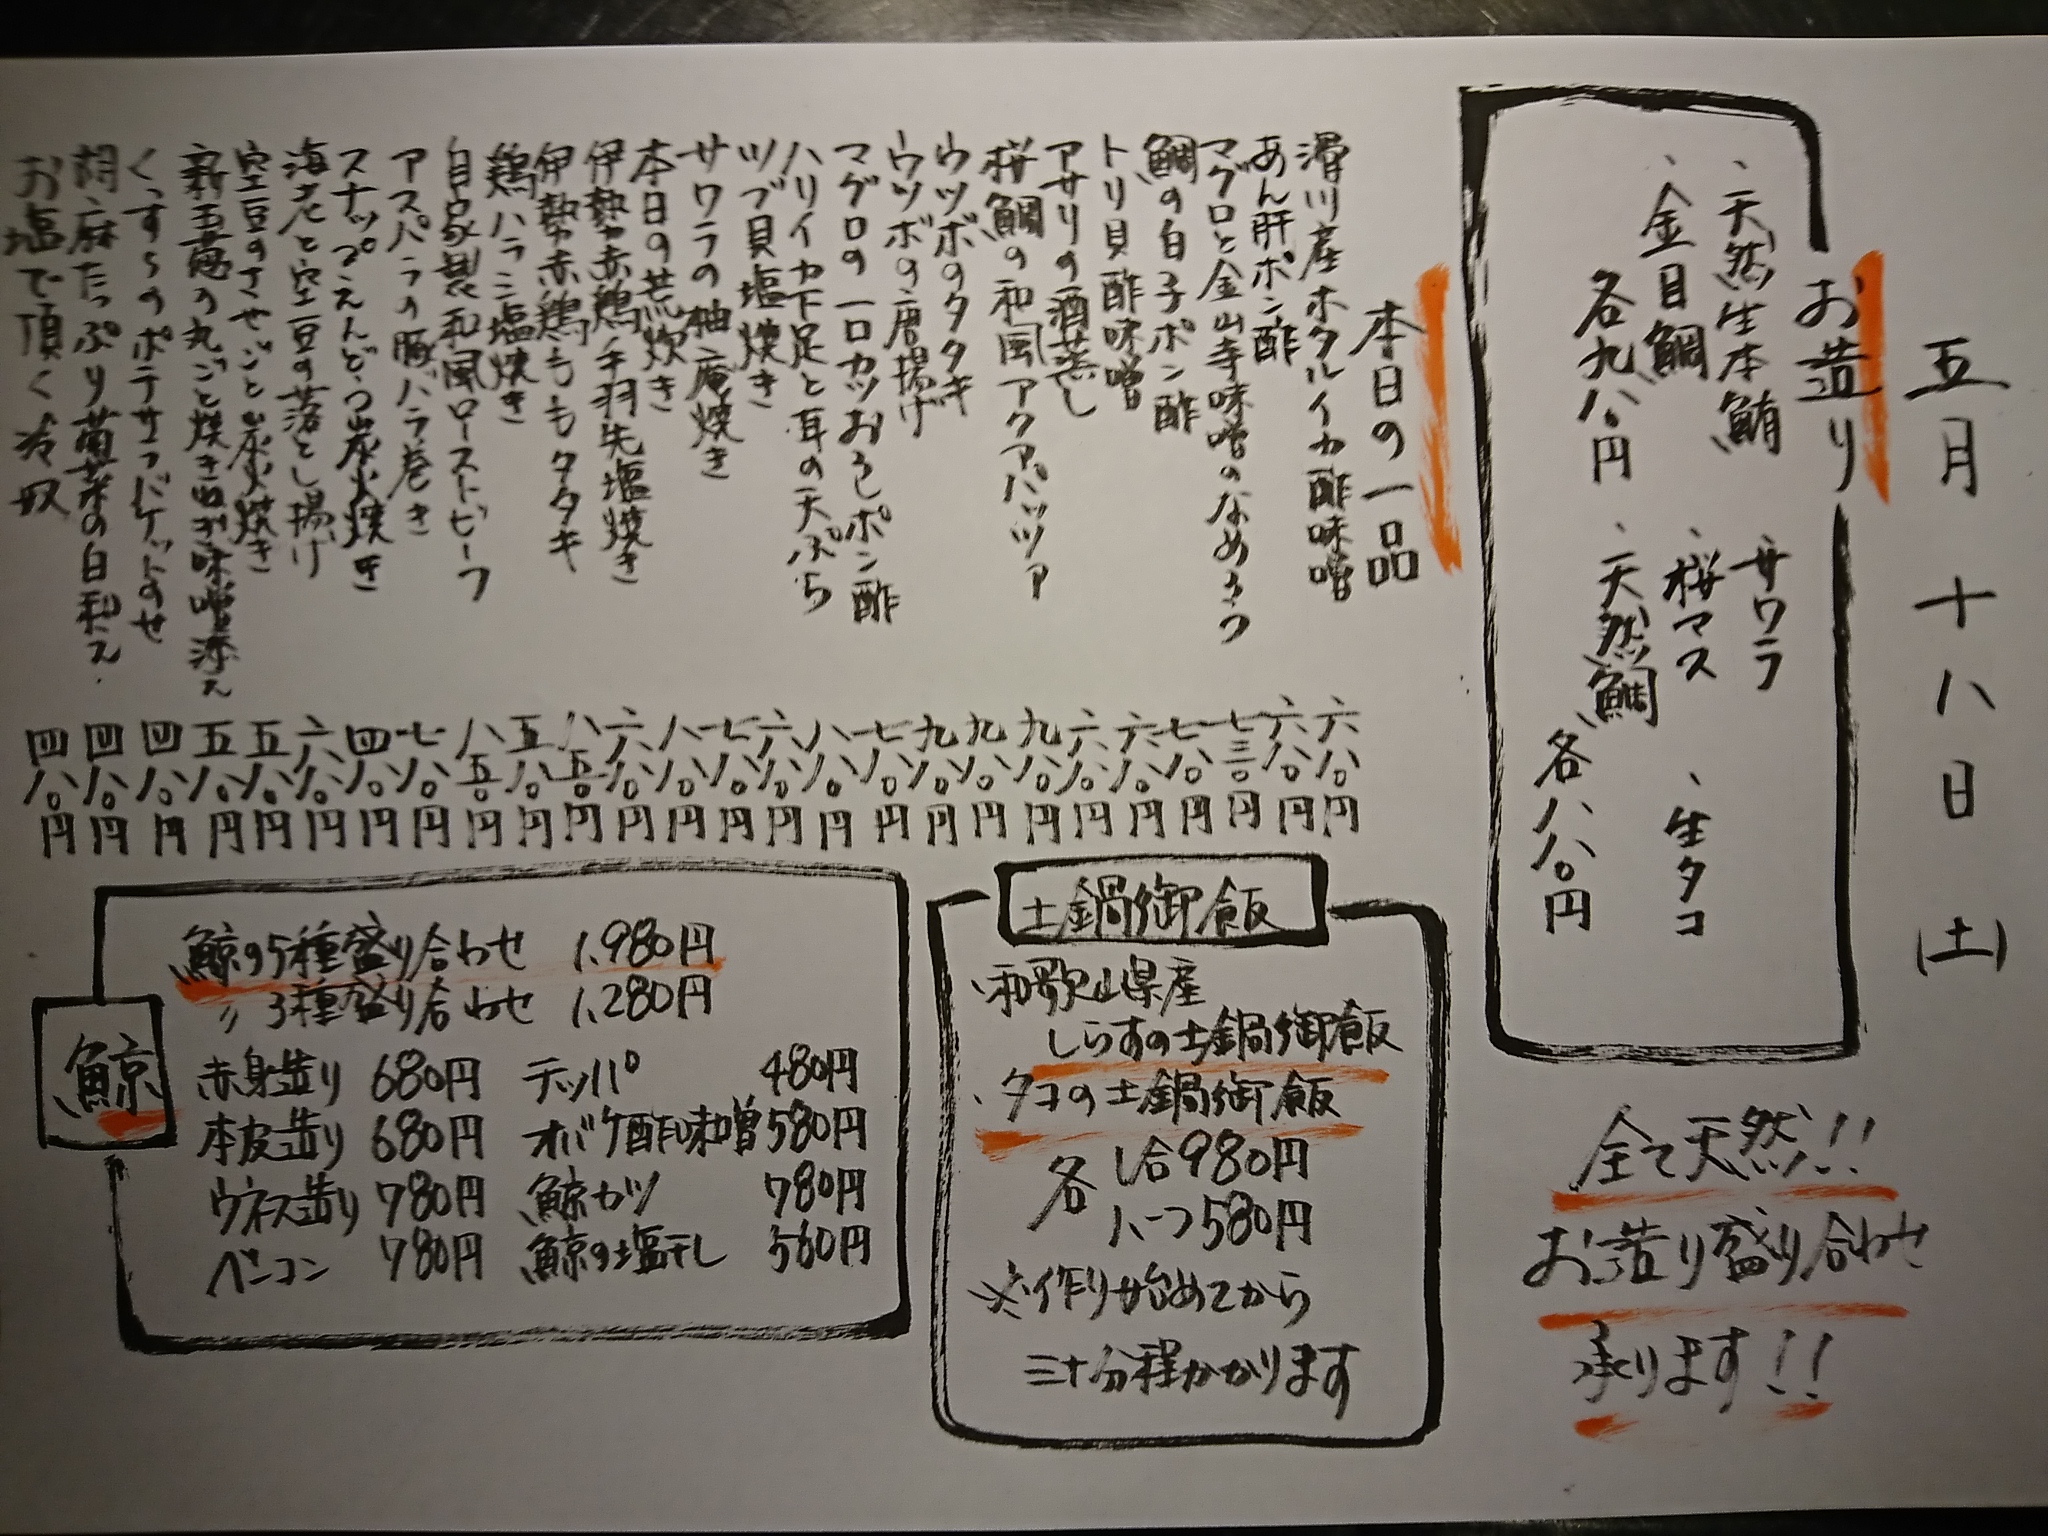 五月十八日(土)
お造り
、天然生本鮪 サワラ
、金目鯛 、桜マス 、生タコ
各九八〇円 、天然鯛 各八八〇円
全て天然!!
お造り盛り合わせ
承ります!!
本日の一品
滑川産ホタルイカ酢味噌 六八〇円
あん肝ポン酢 六八〇円
マグロと金山寺味噌のなめろう 七三〇円
鯛の白子ポン酢 七八〇円
トリ貝酢味噌 六八〇円
アサリの酒蒸し 六八〇円
桜鯛の和風アクアパッツァ 九八〇円
ウツボのタタキ 九八〇円
ウツボの唐揚げ 九八〇円
マグロの一口カツおろしポン酢 七八〇円
ハリイカ下足と耳の天ぷら 八八〇円
ツブ貝塩焼き 六八〇円
サワラの柚庵焼き 七八〇円
本日の荒炊き 八八〇円
伊勢赤鶏手羽先塩焼き 六八〇円
伊勢赤鶏ももタタキ 八五〇円
鶏ハラミ塩焼き 五八〇円
自家製和風ローストビーフ 八五〇円
アスパラの豚バラ巻き 七八〇円
スナップえんどう炭火焼き 四八〇円
海老と空豆の落とし揚げ 六八〇円
空豆のさやごと炭火焼き 五八〇円
新玉葱の丸ごと焼き 味噌添え 五八〇円
くつすらのポテサラバゲットのせ 四八〇円
胡麻たっぷり菊菜の白和え 四八〇円
お塩で頂く冷奴 四八〇円
土鍋御飯
、和歌山県産
しらすの土鍋御飯
、タコの土鍋御飯
各 1合980円
ハーフ580円
※作り始めてから
三十分程かかります
鯨
鯨の5種盛り合わせ 1,980円
〃 3種盛り合わせ 1,280円
赤身造り 680円 テッパ 480円
本皮造り 680円 オバケ酢味噌 580円
ウネス造り 780円 鯨カツ 780円
ベーコン 780円 鯨の塩干し 560円